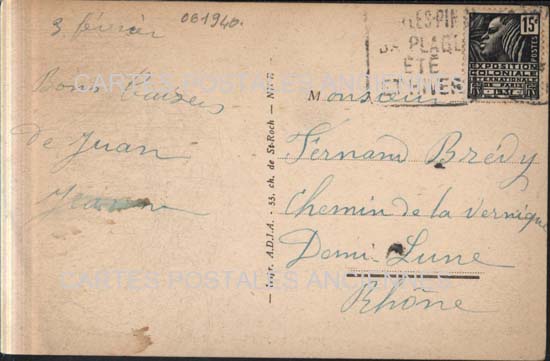 061940.
3 février
Bons Baisers
de Juan
LES-PINS
SA PLAGE
ÉTÉ
ET HIVER
15c
POSTES
EXPOSITION
COLONIALE
INTERNATIONALE
DE PARIS
Impr. A.D.I.A. - 33, ch. de St-Roch - NICE
Monsieur
Fernand Brédy
Chemin de la Vernique
Demi-Lune
Rhône
CARTES POSTALES ANCIENNES
CARTES POSTALES ANCIENNES